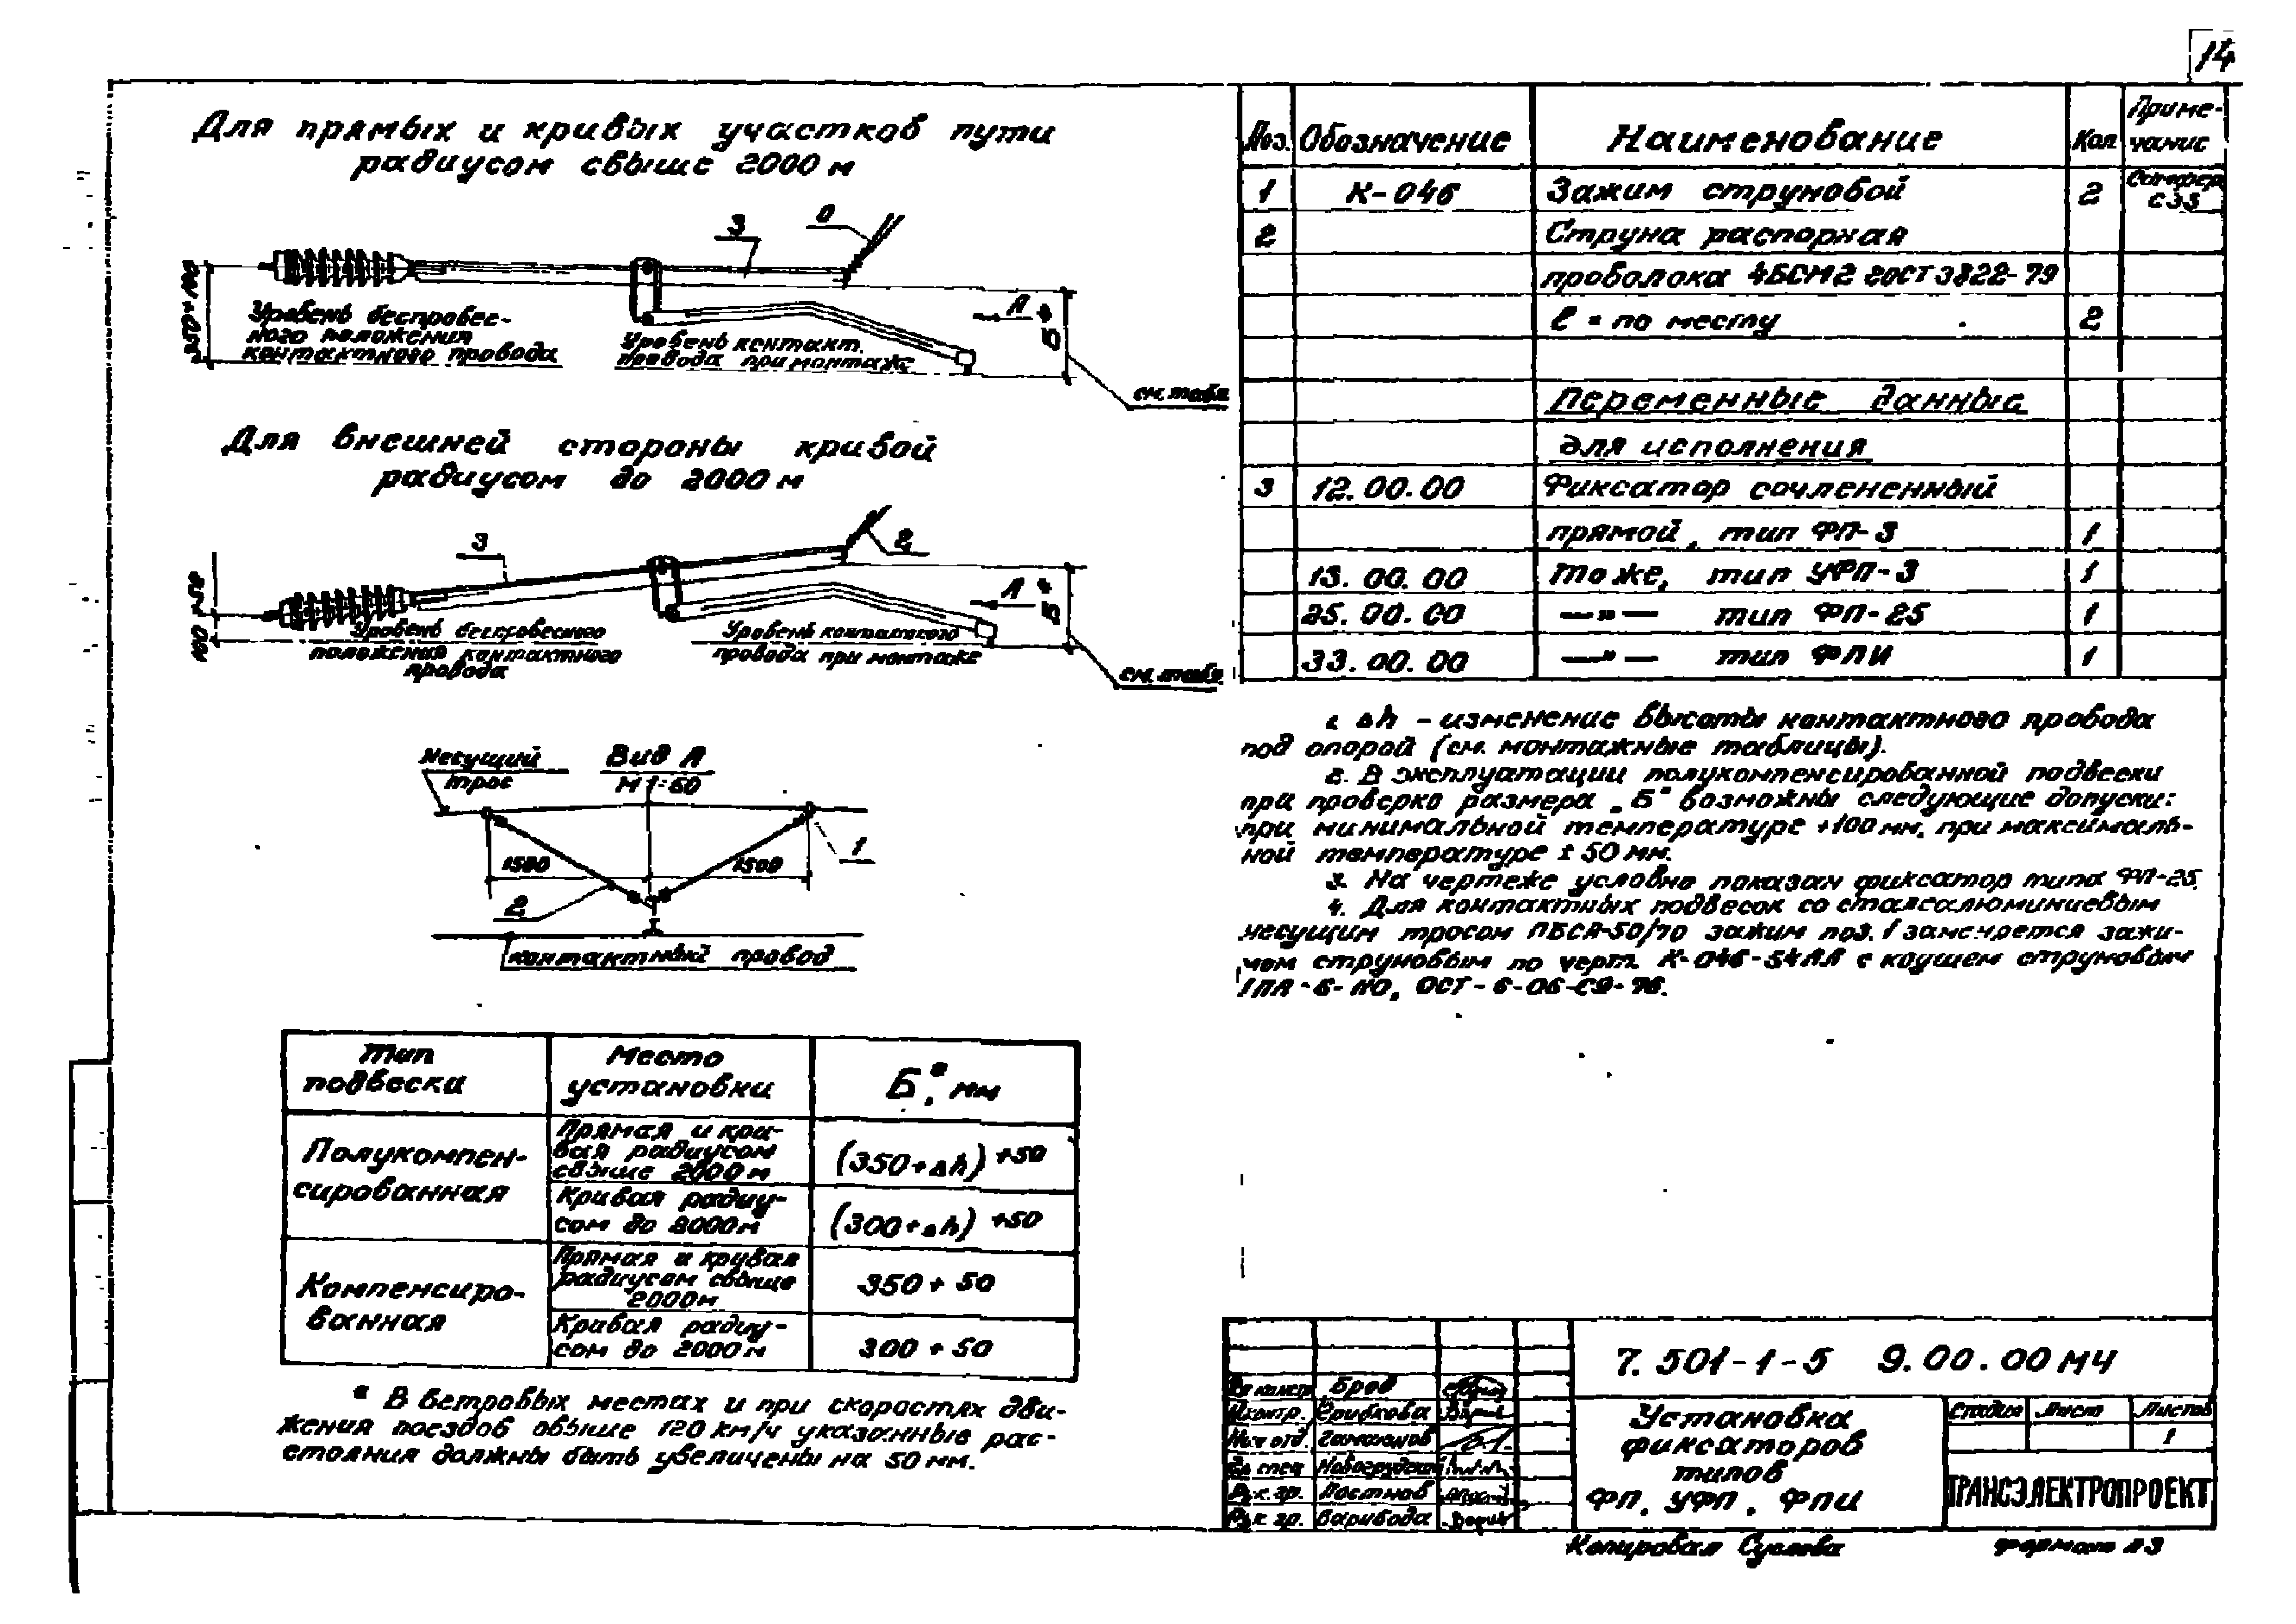 14
Для прямых и кривых участков пути
радиусом свыше 2000 м
3
Уровень беспровес-
ного положения
контактного провода
Уровень контакт.
провода при монтаже
А
Б*
см. табл
Для внешней стороны кривой
радиусом до 2000 м
3
2
А
Б*
Уровень беспровесного
положения контактного
провода
Уровень контактного
провода при монтаже
см. табл
Несущий
трос
Вид А
М 1:50
1500
1500
1
2
контактный провод
Тип
подвески
Место
установки
Б*, мм
Полукомпен-
сированная
Прямая и кри-
вая радиусом
свыше 2000 м
(350+Δh) +50
Кривая радиу-
сом до 2000 м
(300+Δh) +50
Компенсиро-
ванная
Прямая и кривая
радиусом свыше
2000 м
350 + 50
Кривая радиу-
сом до 2000 м
300 + 50
* В ветровых местах и при скоростях дви-
жения поездов свыше 120 км/ч указанные рас-
стояния должны быть увеличены на 50 мм.
Поз. Обозначение Наименование Кол Приме-
чание
1 К-046 Зажим струновой 2
2 Струна распорная
проволока 4БСМ2 ГОСТ 3822-79
ℓ = по месту 2
Переменные данные
для исполнения
3 12.00.00 Фиксатор сочлененный
прямой, тип ФП-3 1
13.00.00 То же, тип УФП-3 1
25.00.00 —"— тип ФП-25 1
33.00.00 —"— тип ФПИ 1
1. Δh - изменение высоты контактного провода
под опорой (см. монтажные таблицы).
2. В эксплуатации полукомпенсированной подвески
при проверке размера „Б" возможны следующие допуски:
при минимальной температуре +100 мм, при максималь-
ной температуре ± 50 мм.
3. На чертеже условно показан фиксатор типа ФП-25.
4. Для контактных подвесок со сталеалюминиевым
несущим тросом ПБСА-50/70 зажим поз. 1 заменяется зажи-
мом струновым по черт. К-046-54 с коушем струновым
7.501-1-5 9.00.00 МЧ
Установка
фиксаторов
типов
ФП, УФП, ФПИ
Стадия Лист Листов
1
ТРАНСЭЛЕКТРОПРОЕКТ
Н. контр.
Нач отд.
Гл спец Новогрудский
Рук. гр. Постнов
Рук гр. Варивода
Копировал Суслова
формат А3